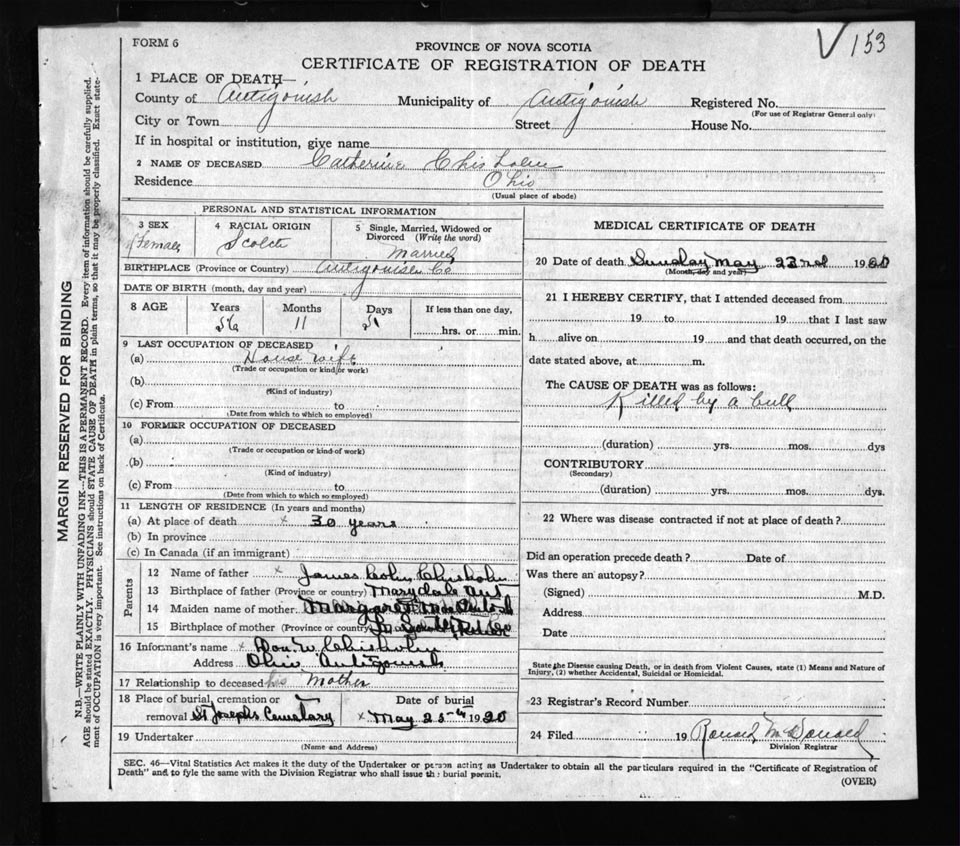 FORM 6
V 153
PROVINCE OF NOVA SCOTIA
CERTIFICATE OF REGISTRATION OF DEATH
1 PLACE OF DEATH—
County of Antigonish Municipality of Antigonish Registered No.
(For use of Registrar General only)
City or Town Street House No.
If in hospital or institution, give name
2 NAME OF DECEASED Catherine Chisholm
Residence Ohio
(Usual place of abode)
PERSONAL AND STATISTICAL INFORMATION
3 SEX Female
4 RACIAL ORIGIN Scotch
5 Single, Married, Widowed or Divorced (Write the word)
Married
BIRTHPLACE (Province or Country) Antigonish Co
DATE OF BIRTH (month, day and year)
8 AGE Years Months Days If less than one day,
56 11 21 hrs. or min.
9 LAST OCCUPATION OF DECEASED
(a) House wife
(Trade or occupation or kind or work)
(b)
(Kind of industry)
(c) From to
(Date from which to which so employed)
10 FORMER OCCUPATION OF DECEASED
(a)
(Trade or occupation or kind of work)
(b)
(Kind of industry)
(c) From to
(Date from which to which so employed)
11 LENGTH OF RESIDENCE (In years and months)
(a) At place of death x 30 years
(b) In province
(c) In Canada (if an immigrant)
Parents
12 Name of father x James Colin Chisholm
13 Birthplace of father (Province or country) Marydale Ant
14 Maiden name of mother Margaret
15 Birthplace of mother (Province or country)
16 Informant's name x Don. W Chisholm
Address Ohio Antigonish
17 Relationship to deceased his Mother
18 Place of burial, cremation or removal St Josephs Cemetary
Date of burial x May 25th 1920
19 Undertaker
(Name and Address)
MEDICAL CERTIFICATE OF DEATH
20 Date of death Sunday May 23rd 1920
(Month, day and year)
21 I HEREBY CERTIFY, that I attended deceased from
19 to 19 that I last saw
h alive on 19 and that death occurred, on the
date stated above, at m.
The CAUSE OF DEATH was as follows:
Killed by a bull
(duration) yrs. mos. dys
CONTRIBUTORY
(Secondary)
(duration) yrs. mos. dys.
22 Where was disease contracted if not at place of death?
Did an operation precede death? Date of
Was there an autopsy?
(Signed) M.D.
Address
Date
State the Disease causing Death, or in death from Violent Causes, state (1) Means and Nature of
Injury, (2) whether Accidental, Suicidal or Homicidal.
23 Registrar's Record Number
24 Filed 19 Ronald McDonald
Division Registrar
SEC. 46—Vital Statistics Act makes it the duty of the Undertaker or person acting as Undertaker to obtain all the particulars required in the "Certificate of Registration of
Death" and to fyle the same with the Division Registrar who shall issue the burial permit.
(OVER)
MARGIN RESERVED FOR BINDING
N.B.—WRITE PLAINLY WITH UNFADING INK—THIS IS A PERMANENT RECORD. Every item of information should be carefully supplied.
AGE should be stated EXACTLY. PHYSICIANS should STATE CAUSE OF DEATH in plain terms, so that it may be properly classified. Exact state-
ment of OCCUPATION is very important. See instructions on back of Certificate.